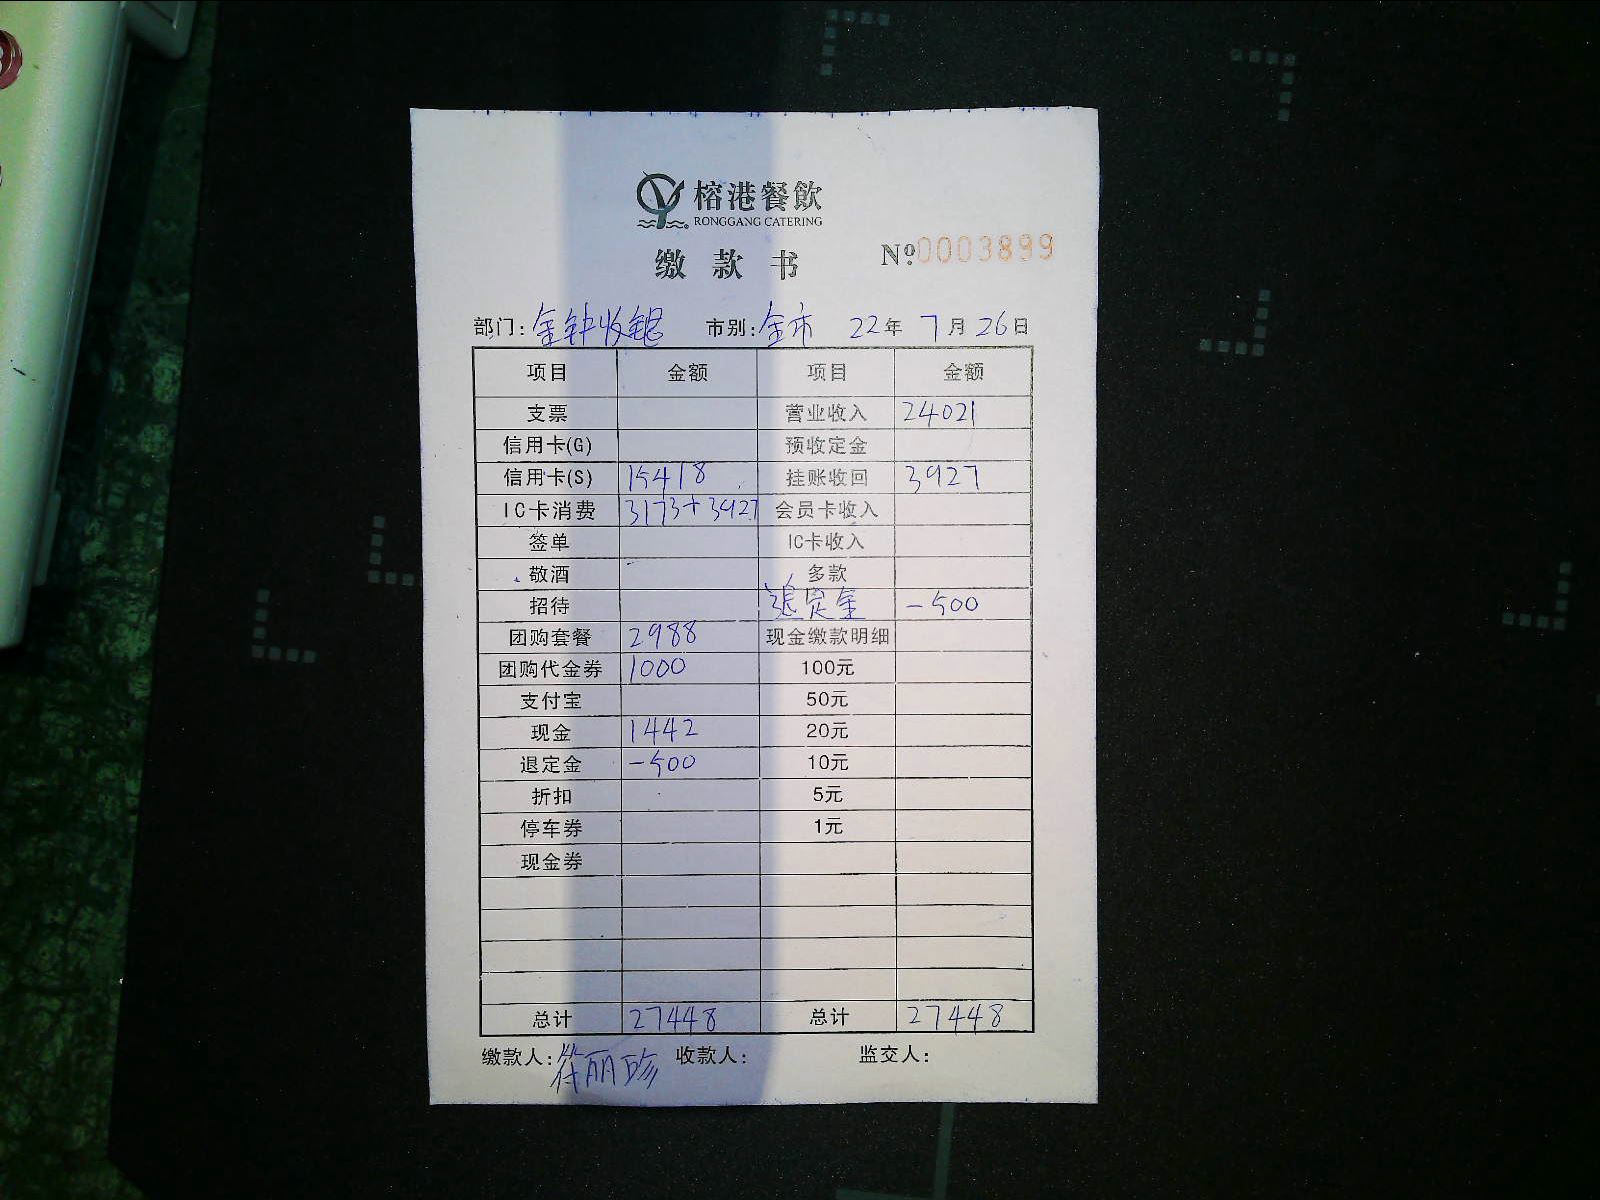 榕港餐飲
RONGGANG CATERING
缴款书 Nº:0003899
部门:金钟收银 市别:全市 22年7月26日
项目 金额 项目 金额
支票 营业收入 24021
信用卡(G) 预收定金
信用卡(S) 15418 挂账收回 3927
IC卡消费 3173+3927 会员卡收入
签单 IC卡收入
敬酒 多款
招待 退定金 -500
团购套餐 2988 现金缴款明细
团购代金券 1000 100元
支付宝 50元
现金 1442 20元
退定金 -500 10元
折扣 5元
停车券 1元
现金券
总计 27448 总计 27448
缴款人:符丽珍 收款人: 监交人: